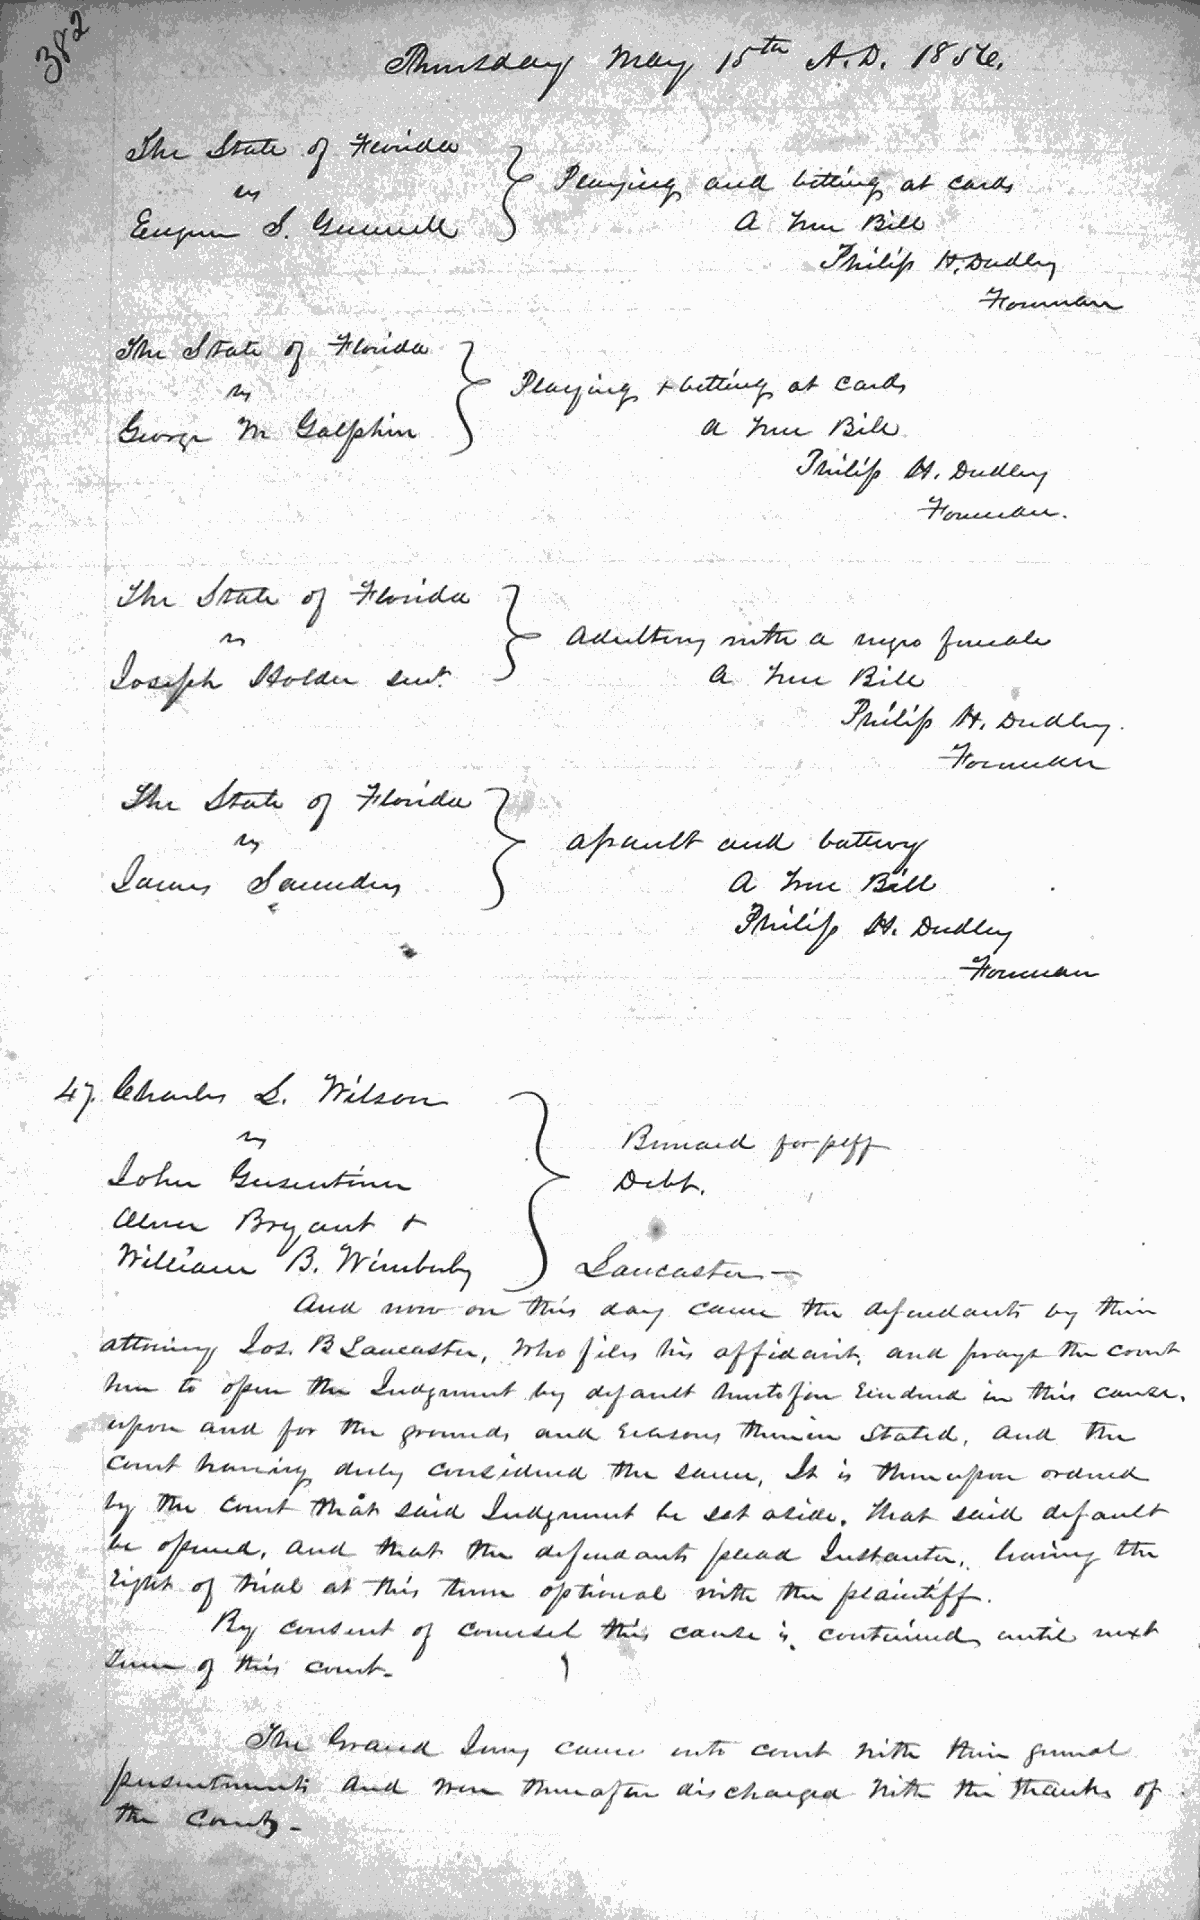 382
Thursday May 15th A.D. 1856.
The State of Florida
vs
Eugene S. Gunnell
Playing and betting at cards
A True Bill
Philip H. Dudley
Foreman
The State of Florida
vs
George M Galphin
Playing + betting at cards
A True Bill
Philip H. Dudley
Foreman.
The State of Florida
vs
Joseph Holder senr.
Adultery with a negro female
A True Bill
Philip H. Dudley.
Foreman
The State of Florida
vs
James Saunders
Assault and battery
A True Bill
Philip H. Dudley
Foreman
47. Charles L. Wilson
vs
John
Bryant +
William B. Wimberly
for plff
Debt.
Lancaster
And now on this day came the defendants by their
attorney Jos. B Lancaster, who files his affidavit, and prays the court
here to open the Judgment by default heretofore rendered in this cause.
upon and for the grounds and reasons therein stated, and the
court having duly considered the same, It is thereupon ordered
by the court that said Judgment be set aside, that said default
be opened, and that the defendants plead Instanter, having the
right of trial at this term optional with the plaintiff.
By consent of counsel this cause is continued until next
Term of this court.
The Grand Jury came into court with their general
presentments and were thereafter discharged with the thanks of
the Court.